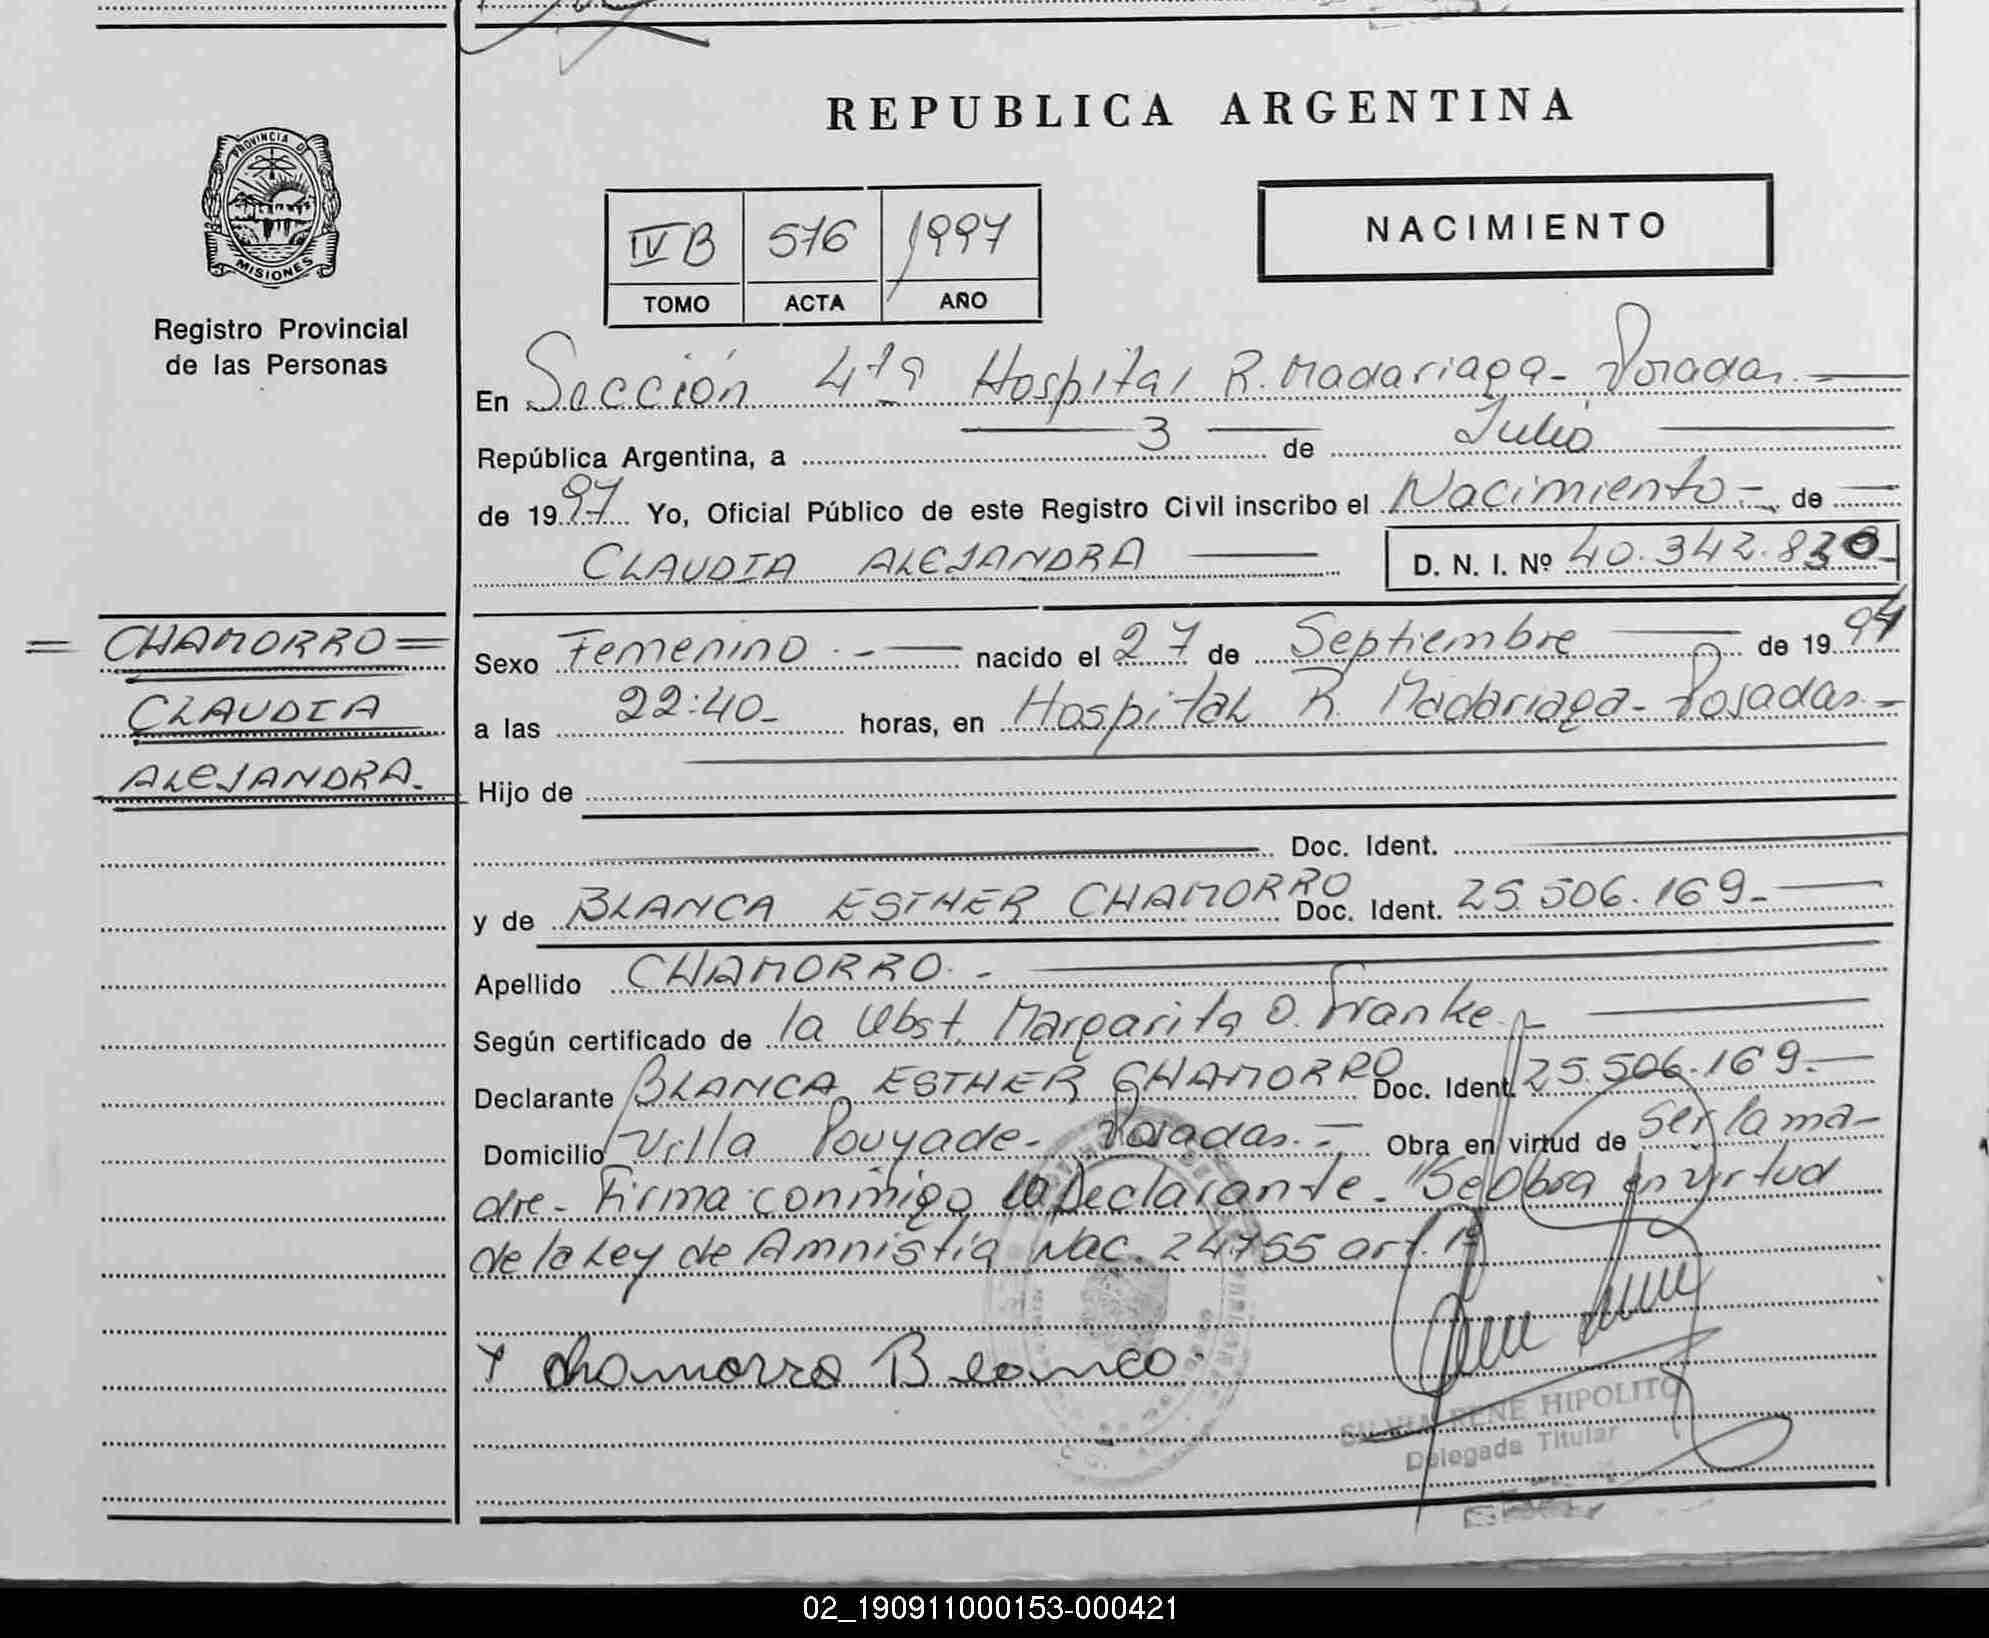 REPUBLICA ARGENTINA
PROVINCIA DE
MISIONES
Registro Provincial
de las Personas
IV B 576 1997
TOMO ACTA AÑO
NACIMIENTO
En Sección 4ta Hospital R. Madariaga - Posadas.
República Argentina, a 3 de Julio
de 1997 Yo, Oficial Público de este Registro Civil inscribo el Nacimiento - de
CLAUDIA ALEJANDRA D. N. I. Nº 40.342.830-
= CHAMORRO =
CLAUDIA
ALEJANDRA.
Sexo Femenino.- nacido el 27 de Septiembre de 1994
a las 22:40- horas, en Hospital R. Madariaga - Posadas.-
Hijo de
Doc. Ident.
y de BLANCA ESTHER CHAMORRO Doc. Ident. 25.506.169-
Apellido CHAMORRO.-
Según certificado de la Obst. Margarita O. Franke.
Declarante BLANCA ESTHER CHAMORRO Doc. Ident. 25.506.169.-
Domicilio Villa Pouyade - Posadas.- Obra en virtud de Ser la ma-
dre- Firma conmigo la Declarante. "Se Obra en virtud
de la Ley de Amnistía Nac. 24755 art. 1º
Chamorro Blanca.
SILVIA RENE HIPOLITO
Delegada Titular
02_190911000153-000421